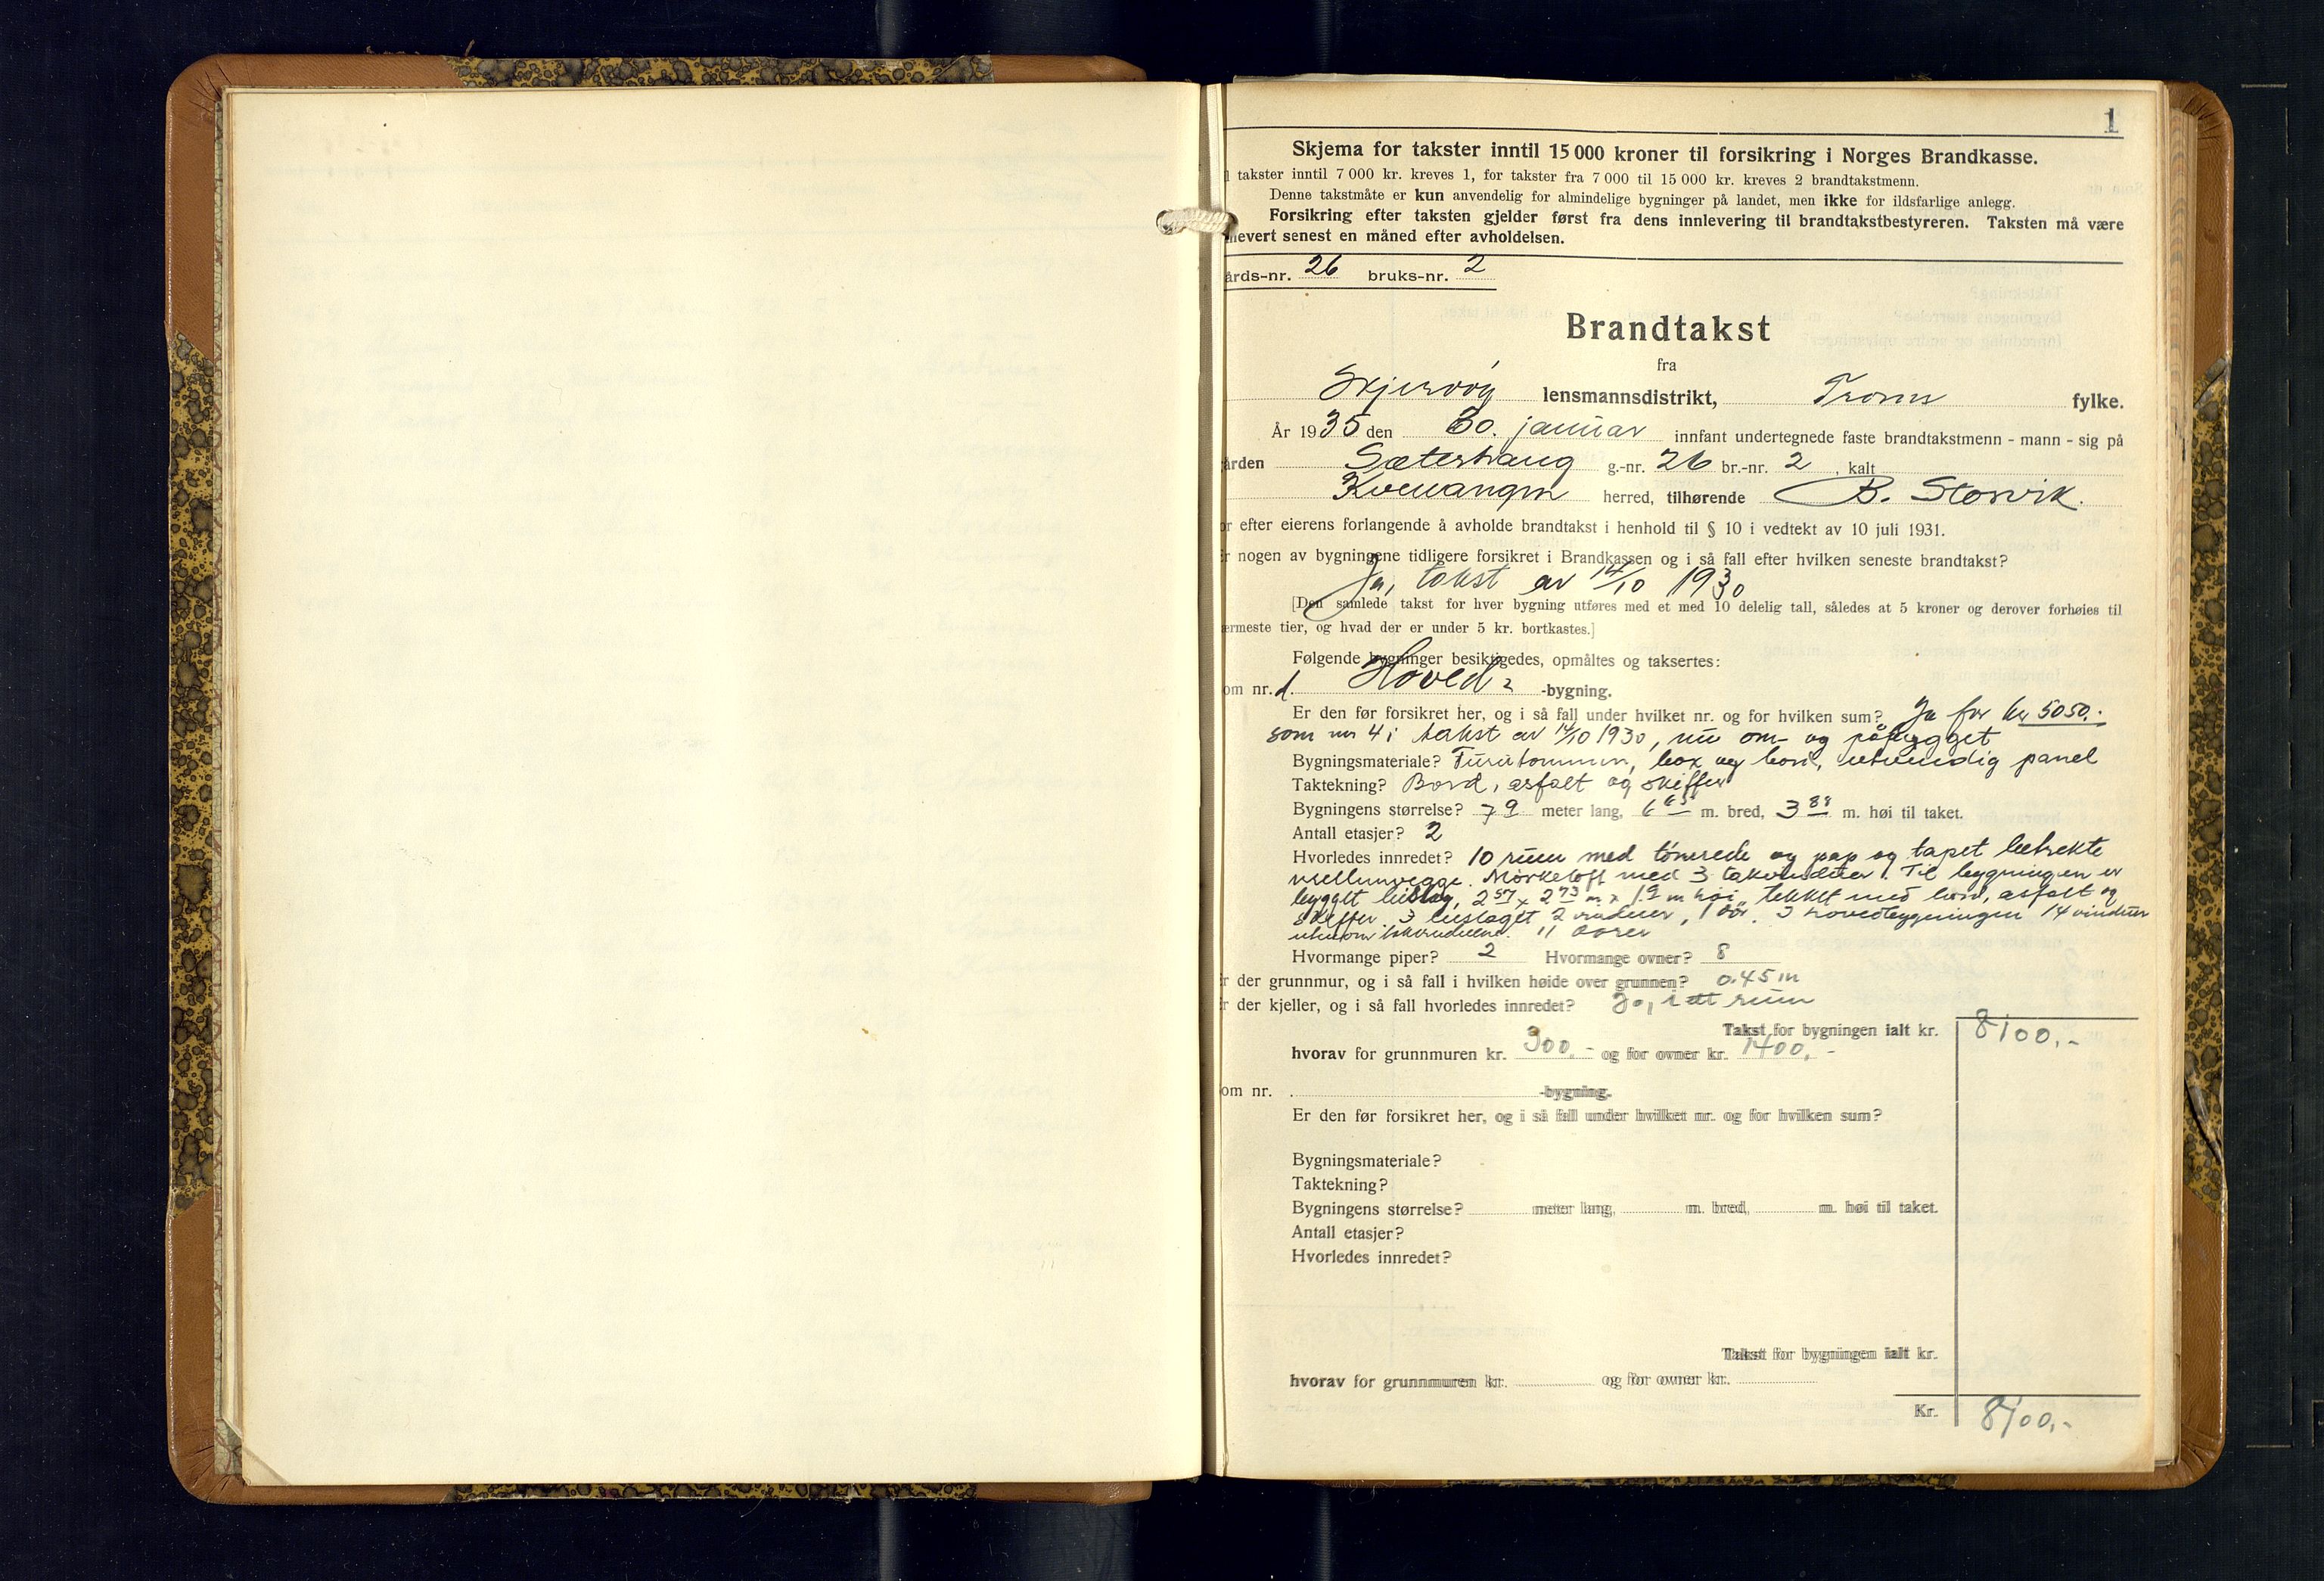 1
Skjema for takster inntil 15 000 kroner til forsikring i Norges Brandkasse.
takster inntil 7 000 kr. kreves 1, for takster fra 7 000 til 15 000 kr. kreves 2 brandtakstmenn.
Denne takstmåte er kun anvendelig for almindelige bygninger på landet, men ikke for ildsfarlige anlegg.
Forsikring efter taksten gjelder først fra dens innlevering til brandtakstbestyreren. Taksten må være
levert senest en måned efter avholdelsen.
årds-nr. 26 bruks-nr. 2
Brandtakst
fra
Skjervøy lensmannsdistrikt, Troms fylke.
År 1935 den 30. januar innfant undertegnede faste brandtakstmenn - mann - sig på
ården Sæterhaug g.-nr. 26 br.-nr. 2, kalt
Kvenangen herred, tilhørende B. Storvik.
or efter eierens forlangende å avholde brandtakst i henhold til § 10 i vedtekt av 10 juli 1931.
r nogen av bygningene tidligere forsikret i Brandkassen og i så fall efter hvilken seneste brandtakst?
Ja, takst av 14/10 1930
[Den samlede takst for hver bygning utføres med et med 10 delelig tall, således at 5 kroner og derover forhøies til
ermeste tier, og hvad der er under 5 kr. bortkastes.]
Følgende bygninger besiktigedes, opmåltes og taksertes:
om nr. 1. Hoved -bygning.
Er den før forsikret her, og i så fall under hvilket nr. og for hvilken sum? Ja for kr 5050.-
som nr 4 i takst av 14/10 1930, nu om- og påbygget
Bygningsmateriale? Furutømmer, box og bord, utvendig panel
Taktekning? Bord, asfalt og skiffer
Bygningens størrelse? 79 meter lang, 6 m. bred, 3 88 m. høi til taket.
Antall etasjer? 2
Hvorledes innredet? 10 rum med tømrede og pap og tapet betrekte
mellemvegge. Mørkeloft med 3 takvinduer. Til bygningen er
bygget bislag, 2 57 x 2 73 m x 1.9 m høi, tekket med bord, asfalt og
skiffer. I bislaget 2 vinduer, 1 dør. I hovedbygningen 14 vinduer
utenom takvinduene. 11 dører
Hvormange piper? 2 Hvormange ovner? 8
r der grunnmur, og i så fall i hvilken høide over grunnen? 0.45 m
r der kjeller, og i så fall hvorledes innredet? Ja, i ett rum
Takst for bygningen ialt kr. 8100.-
hvorav for grunnmuren kr. 300.- og for ovner kr. 1400.-
om nr. -bygning.
Er den før forsikret her, og i så fall under hvilket nr. og for hvilken sum?
Bygningsmateriale?
Taktekning?
Bygningens størrelse? meter lang, m. bred, m. høi til taket.
Antall etasjer?
Hvorledes innredet?
Takst for bygningen ialt kr.
hvorav for grunnmuren kr. og for ovner kr.
Kr. 8100.-